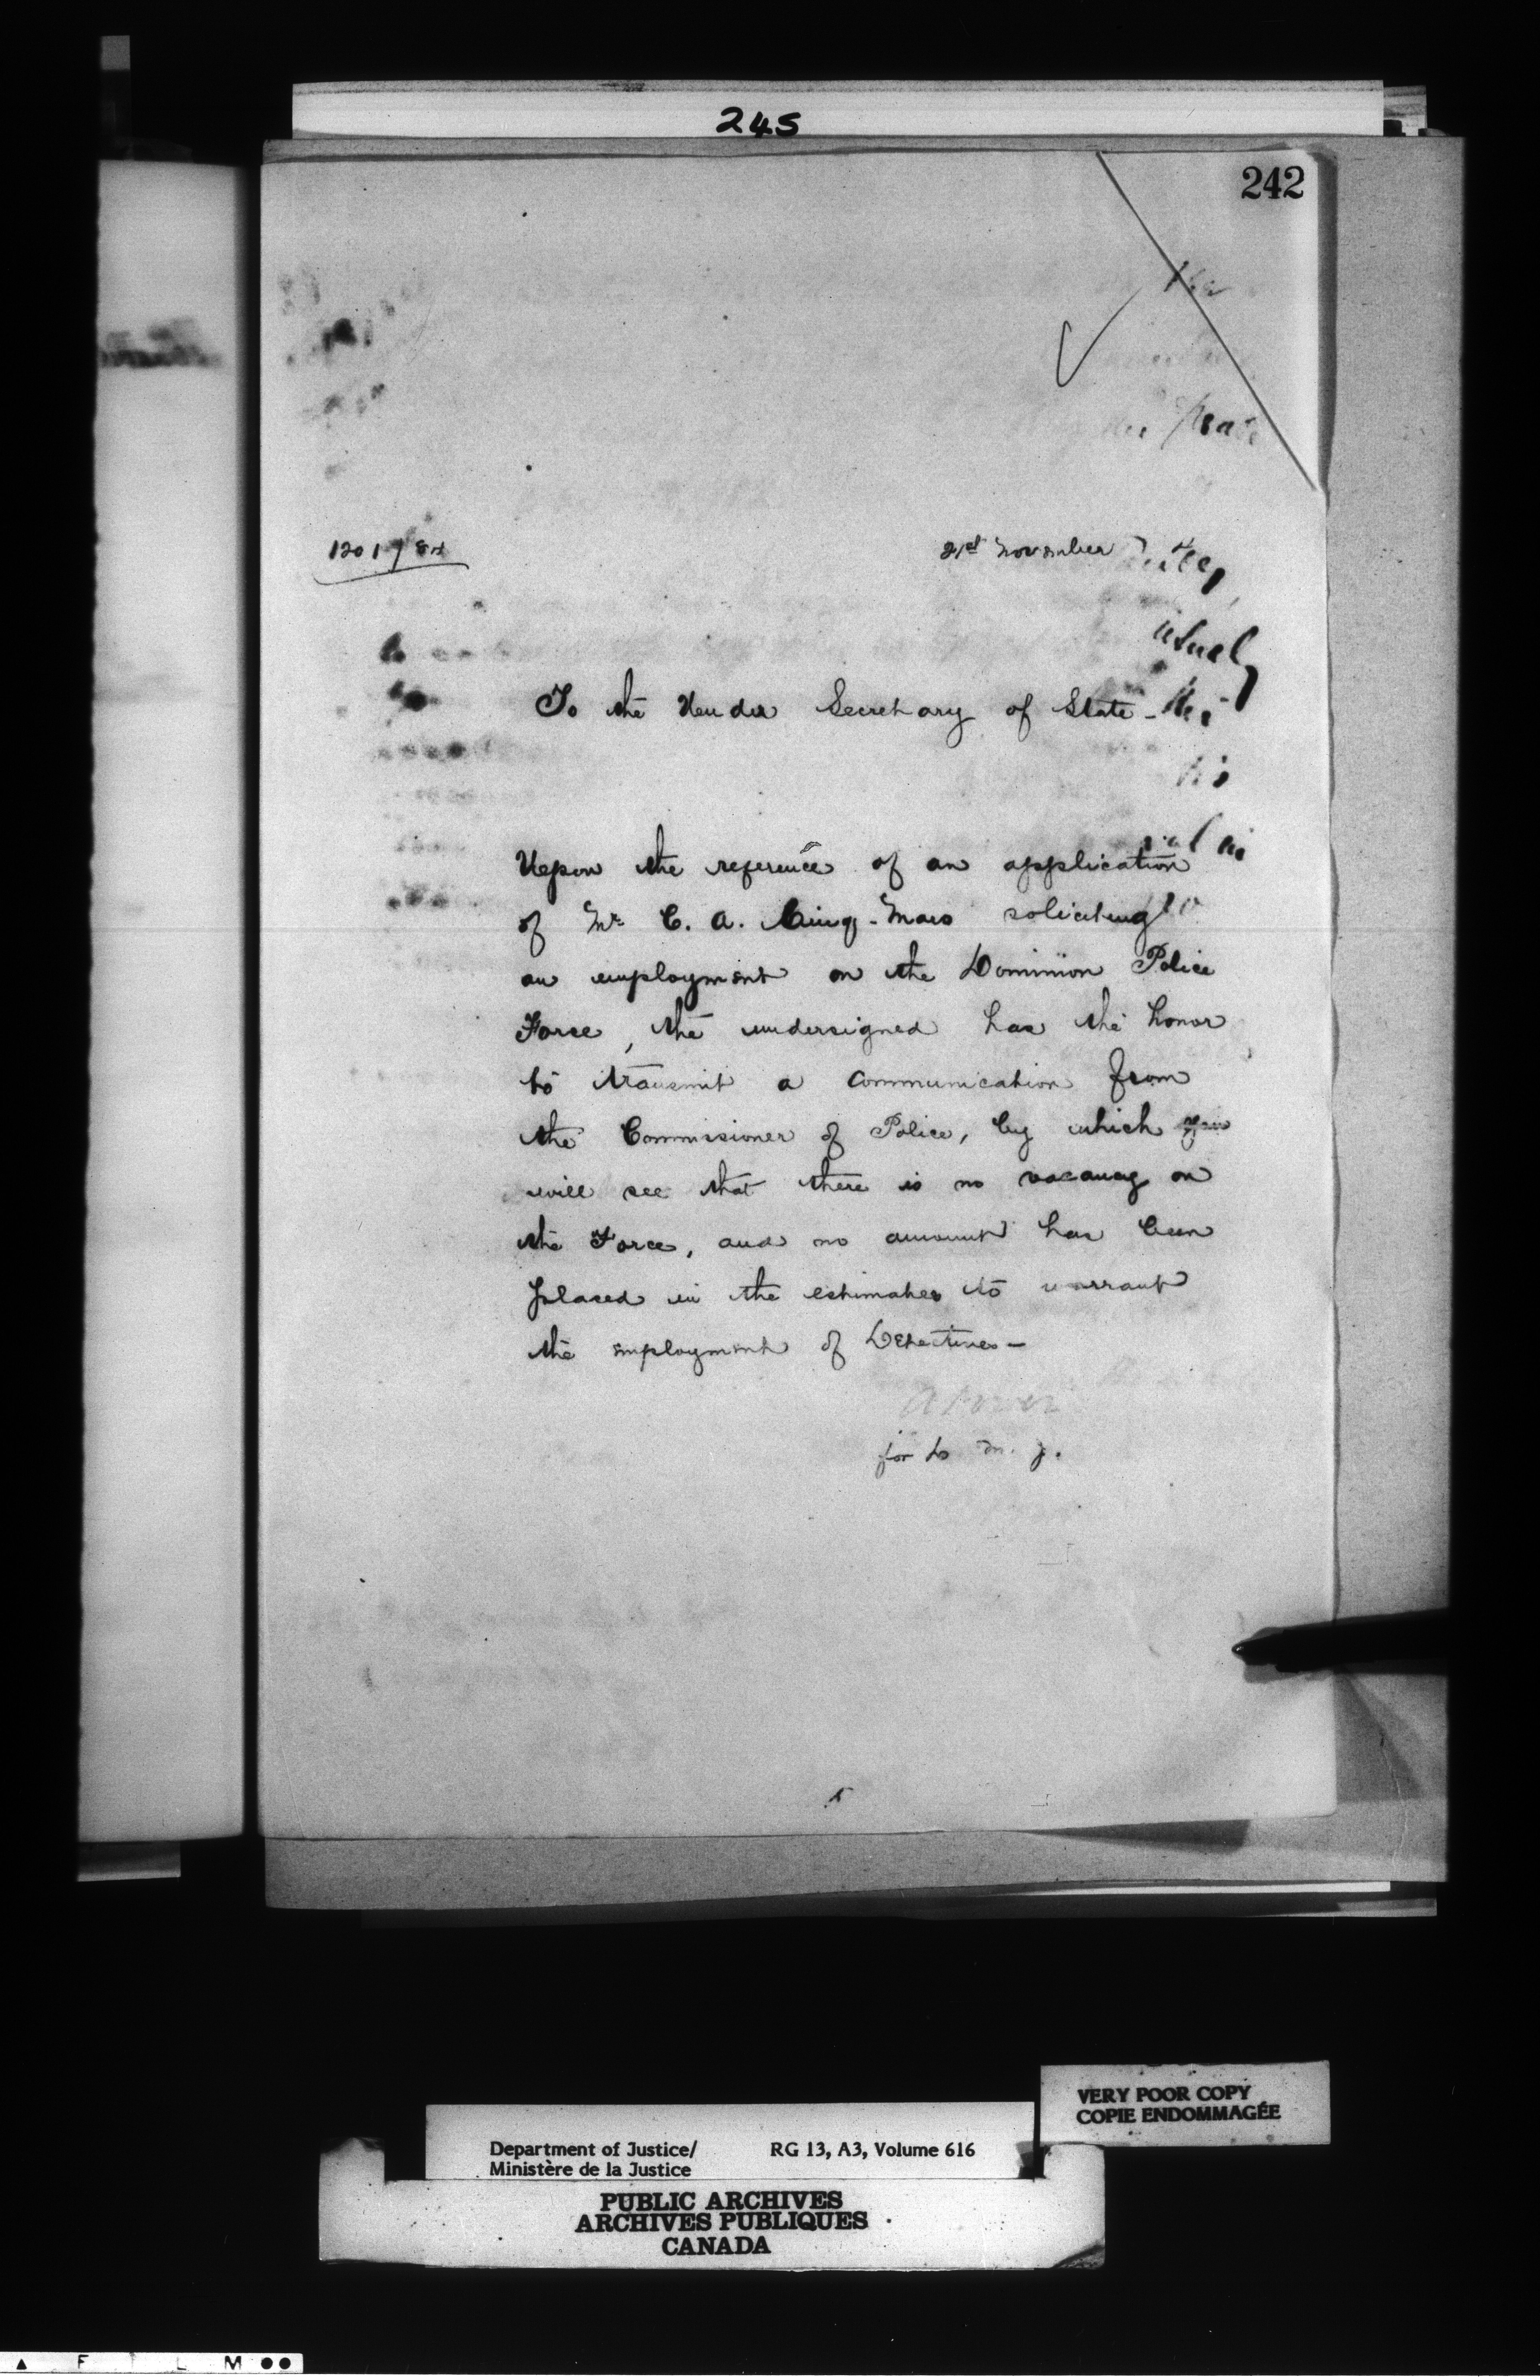 245
242
1201/84
21st November
To the Under Secretary of State -
Upon the reference of an application
of Mr C. A. soliciting
an employment on the Dominion Police
Force, the undersigned has the honor
to transmit a communication from
the Commissioner of Police, by which you
will see that there is no vacancy on
the Force, and no amount has been
placed in the estimates to warrant
the employment of Detectives -
for D. M. J.
VERY POOR COPY
COPIE ENDOMMAGÉE
Department of Justice/ RG 13, A3, Volume 616
Ministère de la Justice
PUBLIC ARCHIVES
ARCHIVES PUBLIQUES
CANADA
F L M